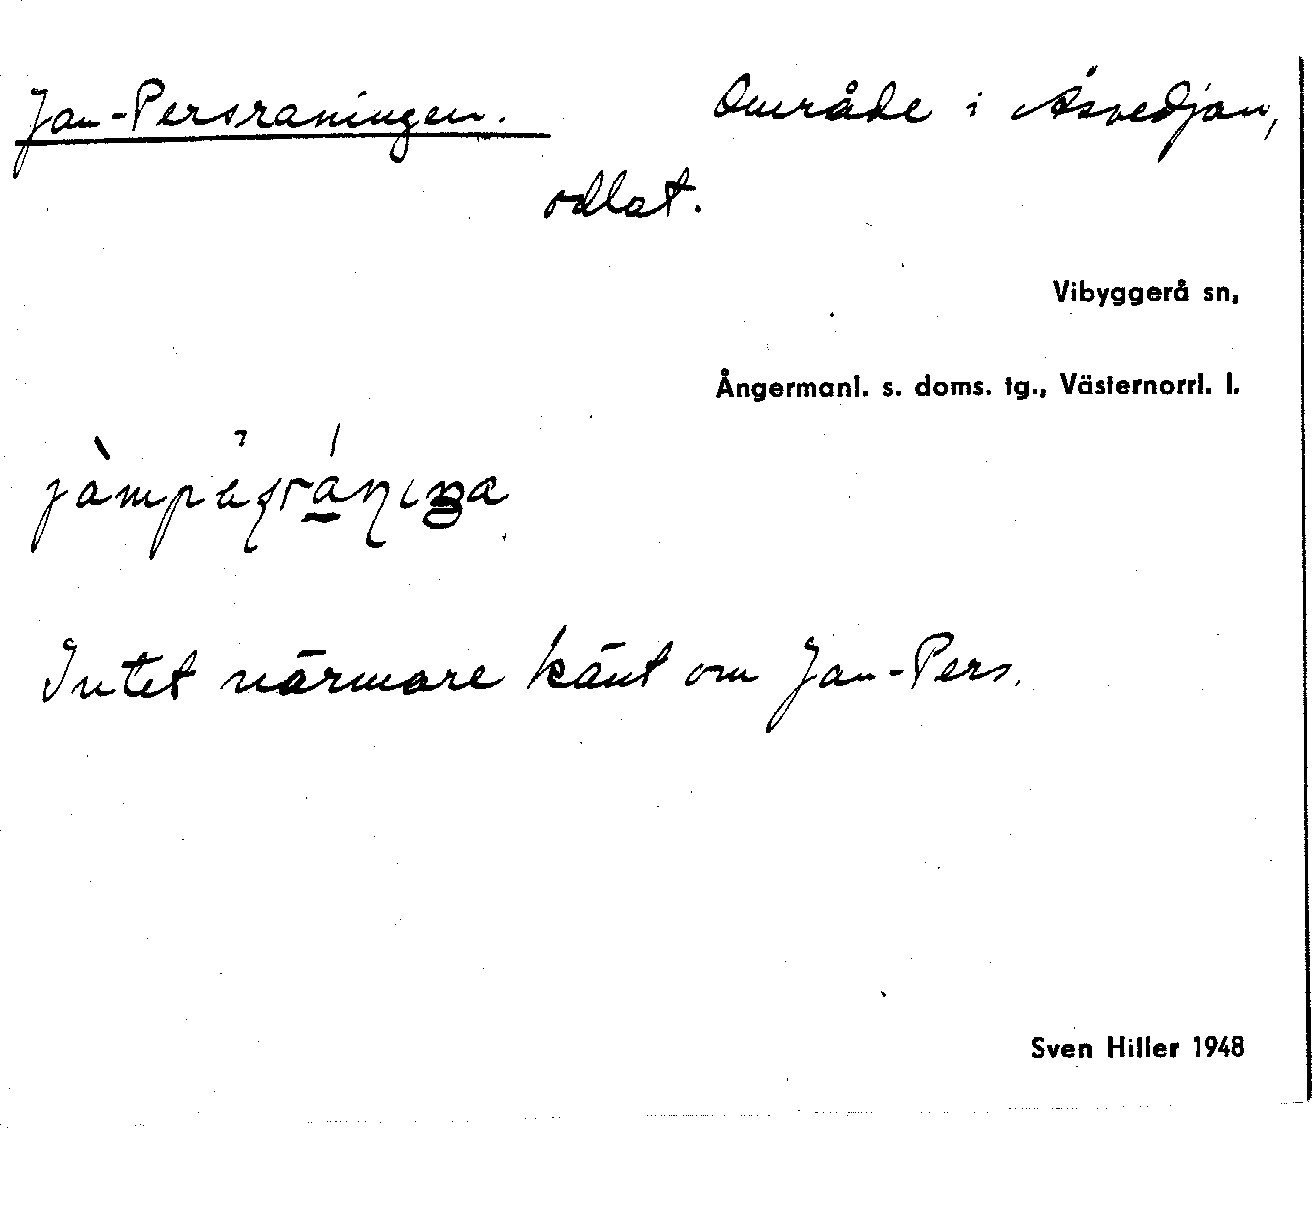 Jan-Persraningen. Område i Åsvedjan,
odlat.
Vibyggerå sn,
Ångermanl. s. doms. tg., Västernorrl. l.
Intet närmare känt om Jan-Pers.
Sven Hiller 1948